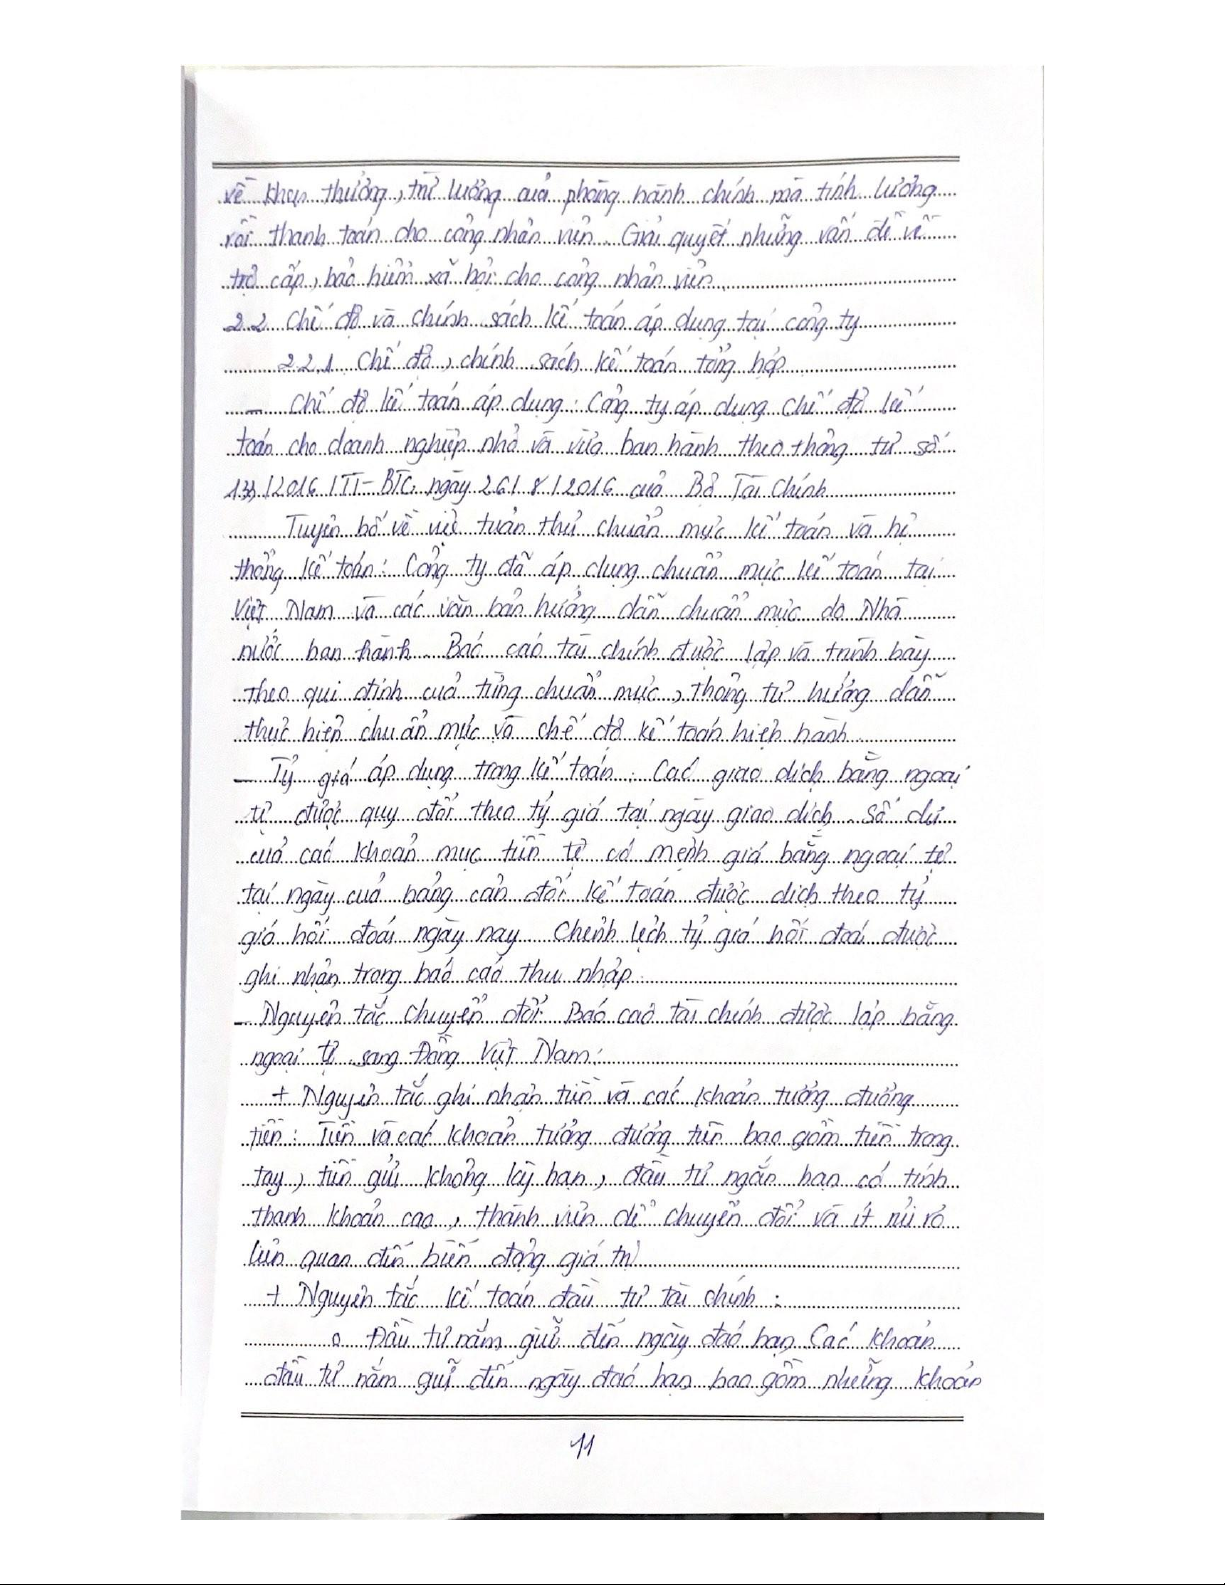 về khen thưởng, trừ lương của phòng hành chính mà tính lương
rồi thanh toán cho công nhân viên. Giải quyết những vấn đề về
trợ cấp, bảo hiểm xã hội cho công nhân viên.
2.2 Chế độ và chính sách kế toán áp dụng tại công ty
2.2.1 Chế độ, chính sách kế toán tổng hợp
- Chế độ kế toán áp dụng: Công ty áp dụng chế độ kế
toán cho doanh nghiệp nhỏ và vừa ban hành theo thông tư số
133/2016/TT-BTC ngày 26/8/2016 của Bộ Tài Chính
Tuyên bố về việc tuân thủ chuẩn mực kế toán và hệ
thống kế toán: Công ty đã áp dụng chuẩn mực kế toán tại
Việt Nam và các văn bản hướng dẫn chuẩn mực do Nhà
nước ban hành. Báo cáo tài chính được lập và trình bày
theo qui định của từng chuẩn mực, thông tư hướng dẫn
thực hiện chuẩn mực và chế độ kế toán hiện hành
- Tỷ giá áp dụng trong kế toán: Các giao dịch bằng ngoại
tệ được quy đổi theo tỷ giá tại ngày giao dịch. Số dư
của các khoản mục tiền tệ có mệnh giá bằng ngoại tệ
tại ngày của bảng cân đối kế toán được dịch theo tỷ
giá hối đoái ngày nay. Chênh lệch tỷ giá hối đoái được
ghi nhận trong báo cáo thu nhập.
- Nguyên tắc chuyển đổi Báo cáo tài chính được lập bằng
ngoại tệ sang Đồng Việt Nam:
+ Nguyên tắc ghi nhận tiền và các khoản tương đương
tiền: Tiền và các khoản tương đương tiền bao gồm tiền trong
tay, tiền gửi không kỳ hạn, đầu tư ngắn hạn có tính
thanh khoản cao, thành viên dễ chuyển đổi và ít rủi ro
liên quan đến biến động giá trị
+ Nguyên tắc kế toán đầu tư tài chính:
o Đầu tư nắm giữ đến ngày đáo hạn Các khoản
đầu tư nắm giữ đến ngày đáo hạn bao gồm những khoản
11